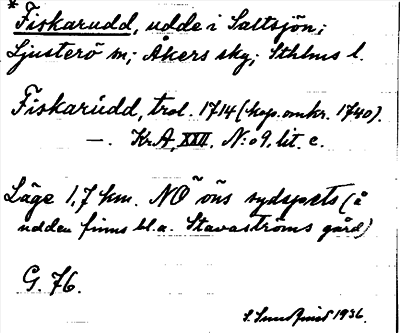 * Fiskarudd, udde i Saltsjön;
Ljusterö sn; Åkers sky; Sthlms l.
Fiskarúdd, trol. 1714 (kop. omkr. 1740).
—. KrA, XXII, N:o 9, lit. c.
Läge 1,7 km. NO öns sydspets (å
udden finns bl.a. Stavaströms gård)
G. 76.
1936.